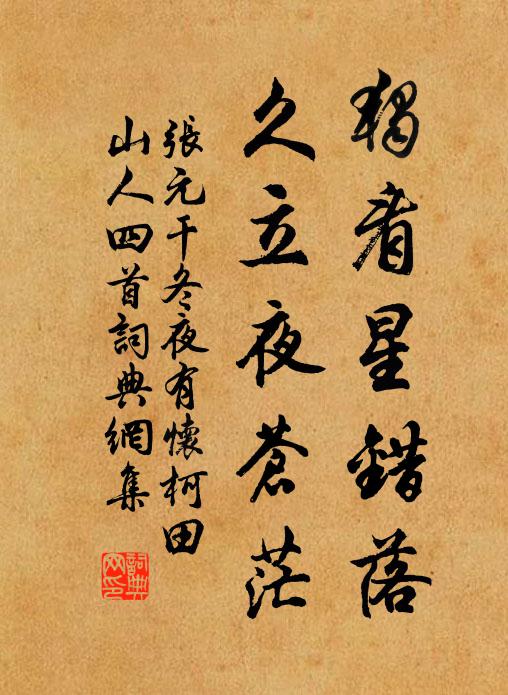 獨看星錯落
久立夜蒼茫
張元干冬夜有懷柯田
山人四首詞典網集
詞典
网印